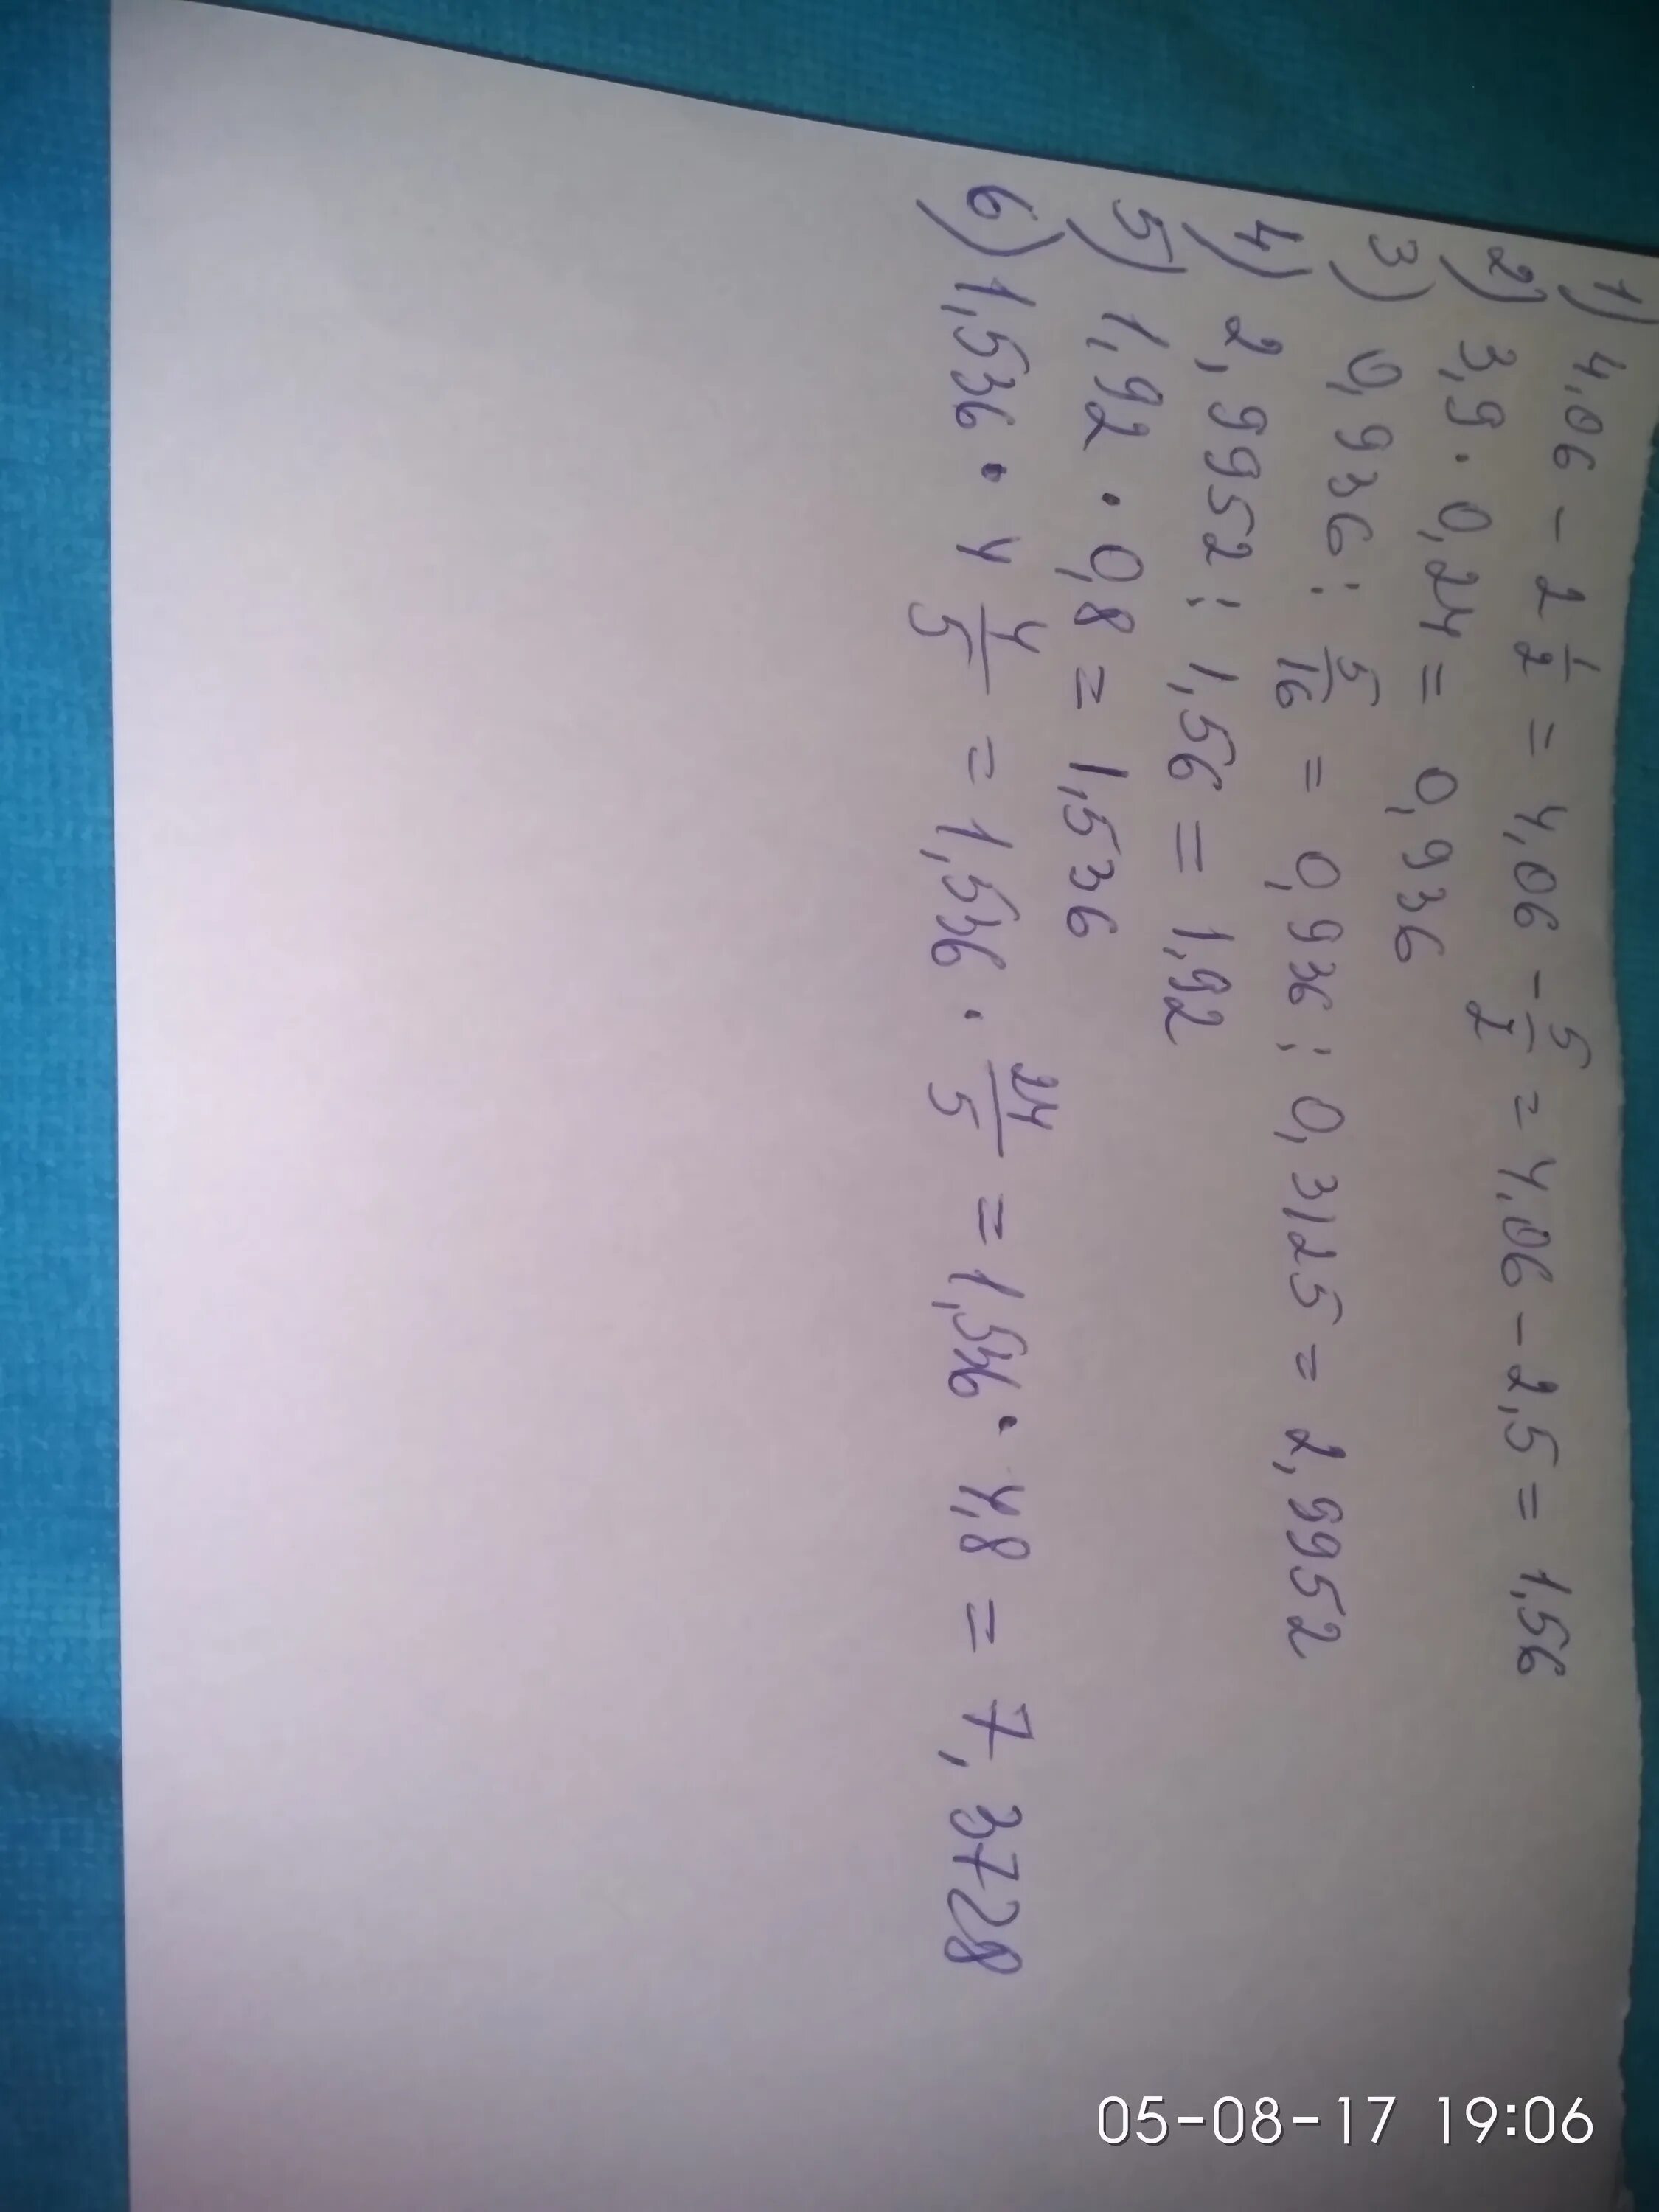 1) 4,06 - 2 1/2 = 4,06 - 5/2 = 4,06 - 2,5 = 1,56
2) 3,9 · 0,24 = 0,936
3) 0,936 : 5/16 = 0,936 : 0,3125 = 2,9952
4) 2,9952 : 1,56 = 1,92
5) 1,92 · 0,8 = 1,536
6) 1,536 · 4 4/5 = 1,536 · 24/5 = 1,536 · 4,8 = 7,3728
05-08-17 19:06